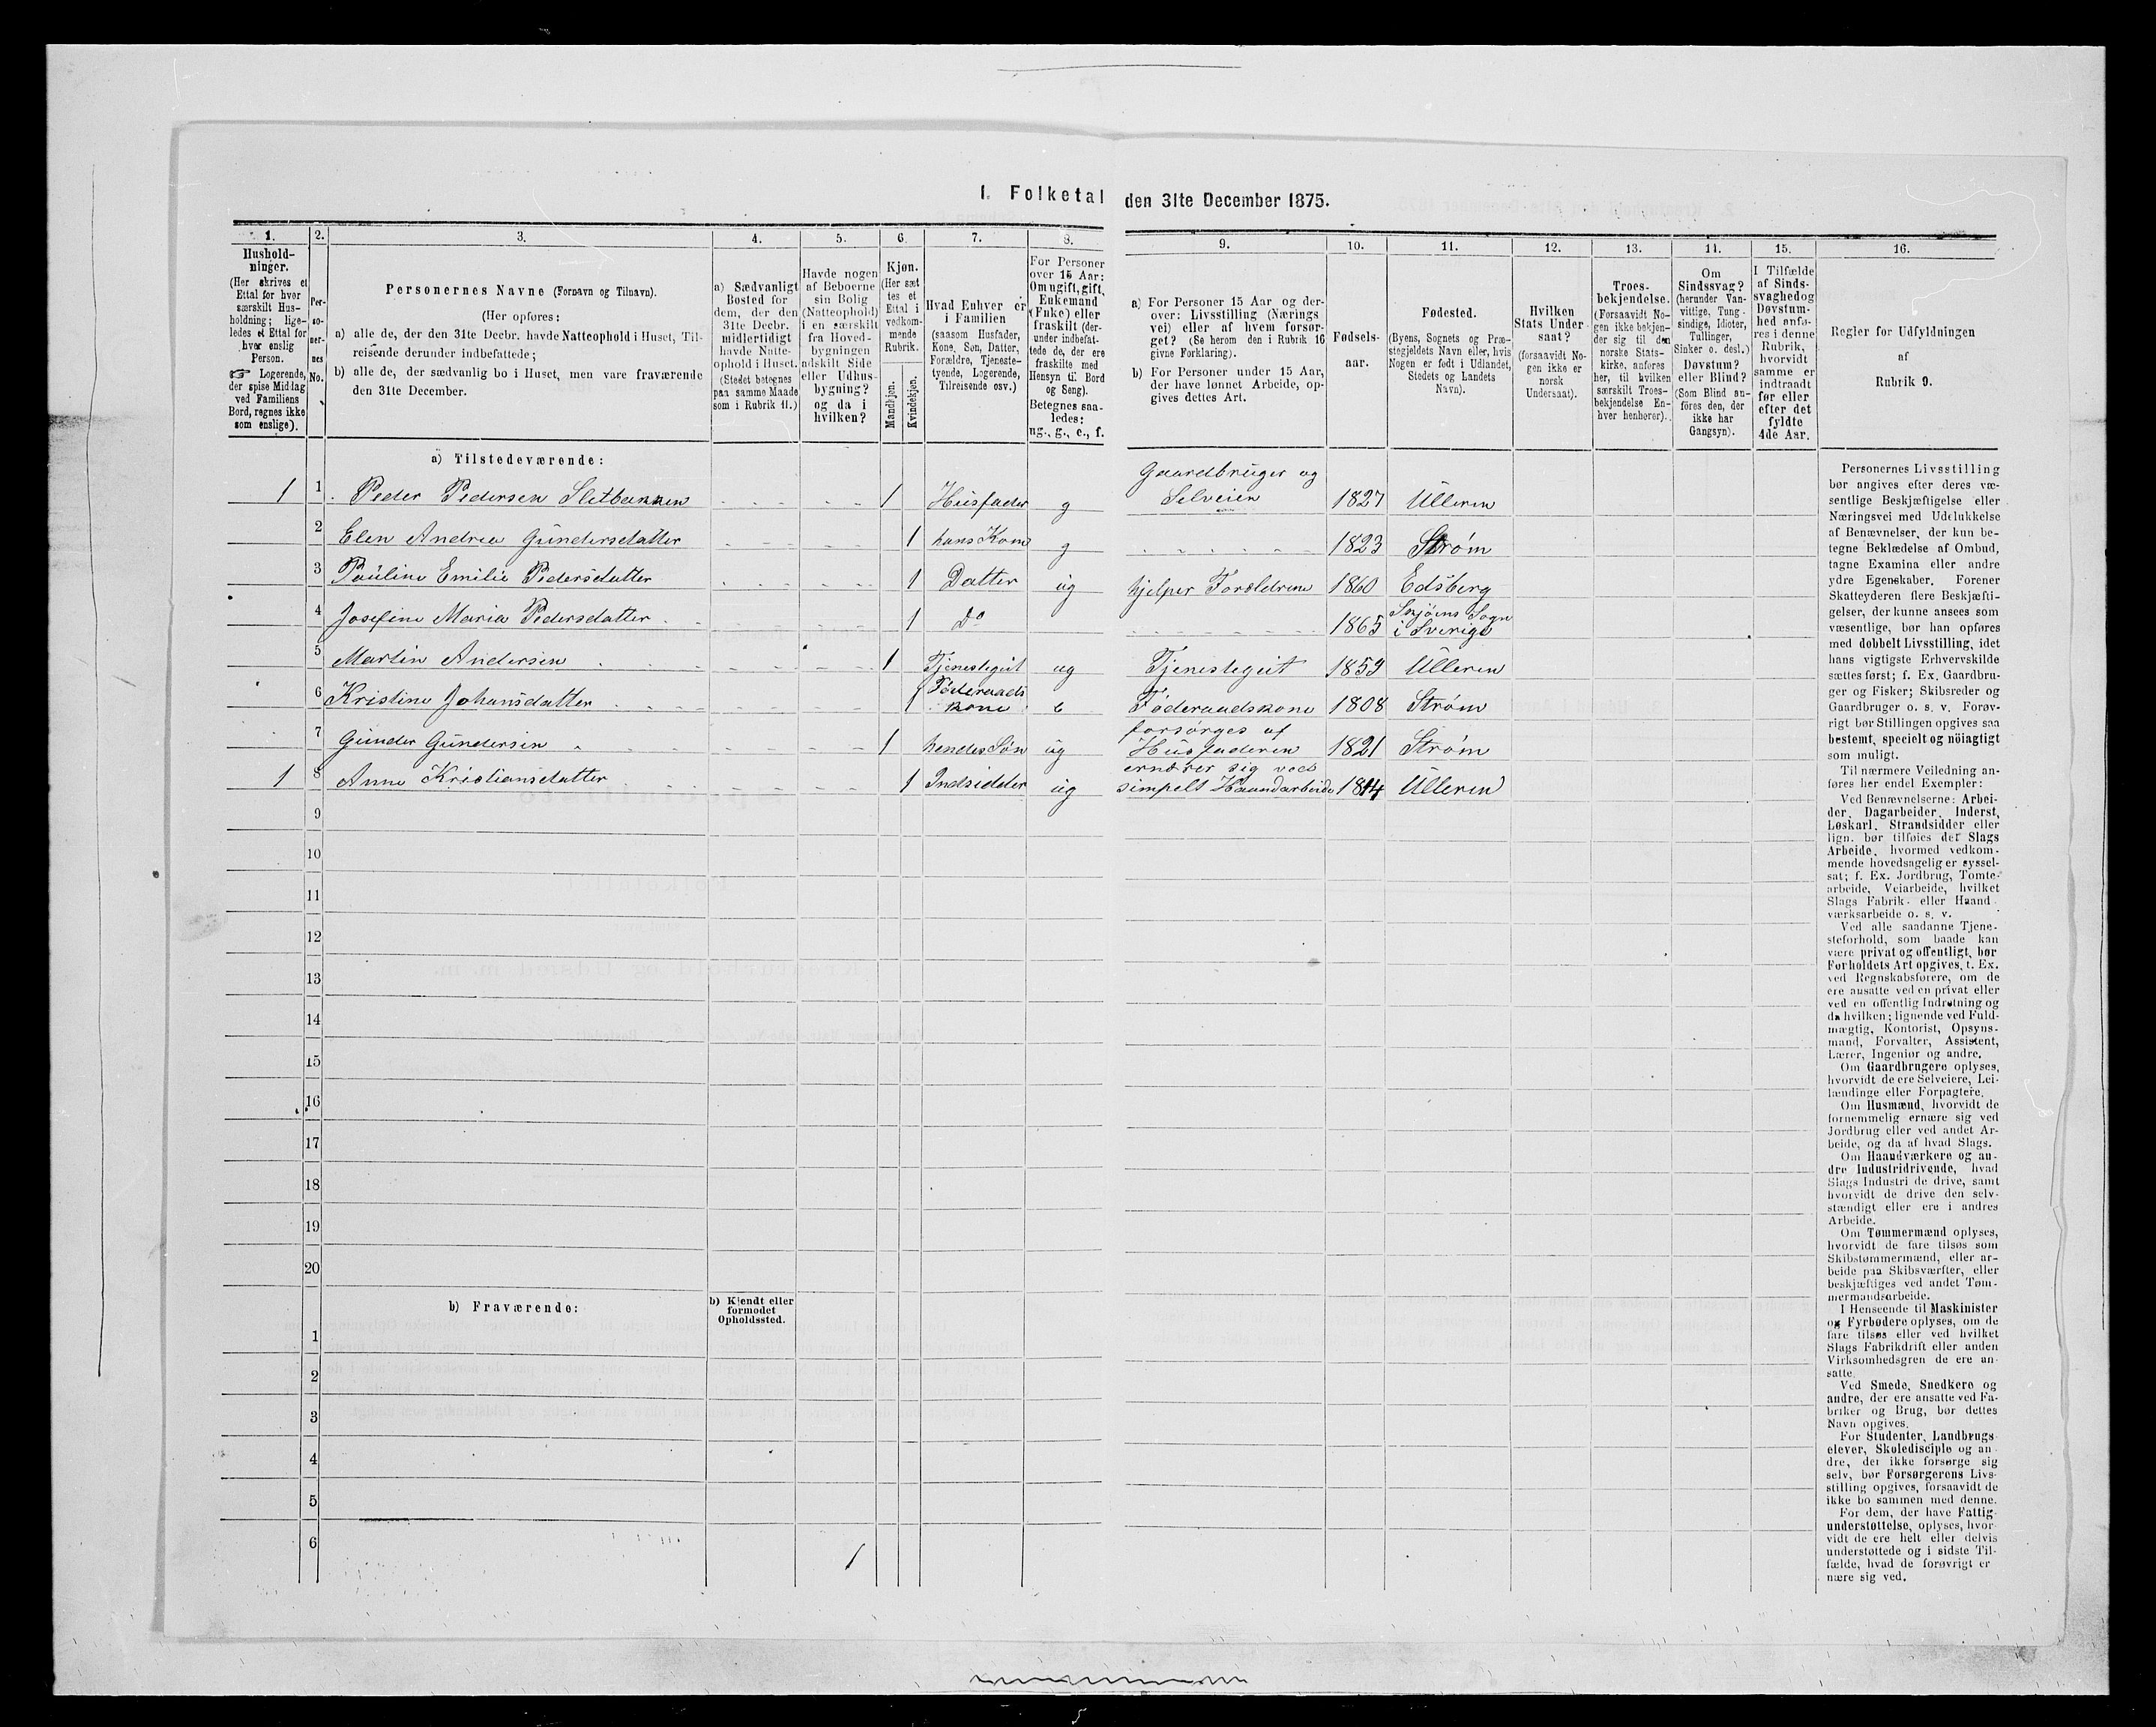 1. Folketal den 31te December 1875.
1. 2. 3. 4. 5. 6. 7. 8. 9. 10. 11. 12. 13. 14. 15. 16.
Hushold-
ninger.
(Her skrives et
Ettal for hver
særskilt Hus-
holdning; lige-
ledes et Ettal for
hver enslig
Person.
☞ Logerende,
der spise Middag
ved Familiens
Bord, regnes ikke
som enslige).
Per-
so-
ner-
nes
No.
Personernes Navne (Fornavn og Tilnavn).
(Her opføres:
a) alle de, der den 31te Decbr. havde Natteophold i Huset, Til-
reisende derunder indbefattede;
b) alle de, der sædvanlig bo i Huset, men vare fraværende
den 31te December.
a) Sædvanligt
Bosted for
dem, der den
31te Decbr.
midlertidigt
havde Natte-
ophold i Huset.
(Stedet betegnes
paa samme Maade
som i Rubrik 11.)
Havde nogen
af Beboerne
sin Bolig
(Natteophold)
i en særskilt
fra Hoved-
bygningen
adskilt Side
eller Udhus-
bygning?
og da i
hvilken?
Kjøn.
(Her sæt
tes et
Ettal i
vedkom-
mende
Rubrik.
Mandkjøn.
Kvindekjøn.
Hvad Enhver er
i Familien
(saasom Husfader,
Kone, Søn, Datter,
Forældre, Tjeneste-
tyende, Logerende,
Tilreisende osv.)
For Personer
over 15 Aar:
Om ugift, gift,
Enkemand
(Enke) eller
fraskilt (der-
under indbefat-
tede de, der ere
fraskilte med
Hensyn til Bord
og Seng).
Betegnes saa-
ledes:
ug., g., e., f.
a) For Personer 15 Aar og der-
over: Livsstilling (Nærings
vei) eller af hvem forsør-
get? (Se herom den i Rubrik 16
givne Forklaring).
b) For Personer under 15 Aar,
der have lønnet Arbeide, op-
gives dettes Art.
Fødsels-
aar.
Fødested.
(Byens, Sognets og Præ-
stegjeldets Navn eller, hvis
Nogen er født i Udlandet,
Stedets og Landets
Navn).
Hvilken
Stats Under-
saat?
(forsaavidt No-
gen ikke er
norsk
Undersaat).
Troes-
bekjendelse.
(Forsaavidt No-
gen ikke bekjen-
der sig til den
norske Stats-
kirke, anføres
her, til hvilken
særskilt Troes-
bekjendelse En-
hver henhører).
Om
Sindssvag?
(herunder Van-
vittige, Tung-
sindige, Idioter,
Tullinger,
Sinker o. desl.)
Døvstum?
eller Blind?
(Som Blind an-
føres den, der
ikke har
Gangsyn).
I Tilfælde
af Sinds-
svaghed og
Døvstum-
hed anfø-
res i denne
Rubrik,
hvorvidt
samme er
indtraadt
før eller
efter det
fyldte
4de Aar.
Regler for Udfyldningen
af
Rubrik 9.
a) Tilstedeværende:
1 1 Peder Pedersen Sletbakken 1 Husfader g Gaardbruger og Selveier 1827 Ulleren
2 Elen Andrea Gundersdatter 1 hans Kone g 1823 Strøm
3 Pauline Emilie Pedersdatter 1 Datter ug hjelper Foreldrene 1860 Edsberg
4 Josefine Maria Pedersdatter 1 Do 1865 Sogn i Sverige
5 Martin Andersen 1 Tjenestegut ug Tjenestegut 1859 Ulleren
6 Kristine Johansdatter 1 Føderaads kone e Føderaadskone 1808 Strøm
7 Gunder Gundersen 1 hendes Søn ug forsørges af Husfaderen 1821 Strøm
1 8 Anne Kristiansdatter 1 Indsidder ug ernærer sig ved simpelt Haandarbeide 1814 Ulleren
9
10
11
12
13
14
15
16
17
18
19
20
b) Fraværende:
b) Kjendt eller
formodet
Opholdssted.
1
2
3
4
5
6
Personernes Livsstilling
bør angives efter deres væ-
sentlige Beskjæftigelse eller
Næringsvei med Udelukkelse
af Benævnelser, der kun be-
tegne Beklædelse af Ombud,
tagne Examina eller andre
ydre Egenskaber. Forener
Skatteyderen flere Beskjæfti-
gelser, der kunne ansees som
væsentlige, bør han opføres
med dobbelt Livsstilling, idet
hans vigtigste Erhvervskilde
sættes først; f. Ex. Gaardbru-
ger og Fisker; Skibsreder og
Gaardbruger o. s. v. Forøv-
rigt bør Stillingen opgives saa
bestemt, specielt og nöiagtigt
som muligt.
Til nærmere Veiledning an-
føres her endel Exempler:
Ved Benævnelserne: Arbei-
der, Dagarbeider, Inderst,
Løskarl, Strandsidder eller
lign. bør tilføies det Slags
Arbeide, hvormed vedkom-
mende hovedsagelig er syssel-
sat; f. Ex. Jordbrug, Tomte-
arbeide, Veiarbeide, hvilket
Slags Fabrik- eller Haand-
værksarbeide o. s. v.
Ved alle saadanne Tjene-
steforhold, som baade kan
være privat og offentligt, bør
Forholdets Art opgives, t. Ex.
ved Regnskabsførere, om de
ere ansatte ved en privat eller
ved en offentlig Indretning og
da hvilken; lignende ved Fuld-
mægtig, Kontorist, Opsyns-
mand, Forvalter, Assistent,
Lærer, Ingeniør og andre.
Om Gaardbrugere oplyses,
hvorvidt de ere Selveiere, Lei-
lændinge eller Forpagtere.
Om Husmænd, hvorvidt de
fornemmelig ernære sig ved
Jordbrug eller ved andet Ar-
beide, og da af hvad Slags.
Om Haandværkere og an-
dre Industridrivende, hvad
Slags Industri de drive, samt
hvorvidt de drive den selv-
stændigt eller ere i andres
Arbeide.
Om Tømmermænd oplyses,
hvorvidt de fare tilsøs som
Skibstømmermænd, eller ar-
beide paa Skibsværfter, eller
beskjæftiges ved andet Tøm-
mermandsarbeide.
I Henseende til Maskinister
og Fyrbødere oplyses, om de
fare tilsøs eller ved hvilket
Slags Fabrikdrift eller anden
Virksomhedsgren de ere an-
satte.
Ved Smede, Snedkere og
andre, der ere ansatte ved Fa-
briker og Brug, bør dettes
Navn opgives.
For Studenter, Landbrugs
elever, Skoledisciple og an-
dre, der ikke forsørge sig
selv, bør Forsørgerens Livs-
stilling opgives, forsaavidt de
ikke bo sammen med denne.
For dem, der have Fattig-
understøttelse, oplyses, hvor-
vidt de ere helt eller delvis
understøttede og i sidste Til-
fælde, hvad de forøvrigt er
nære sig ved.
5